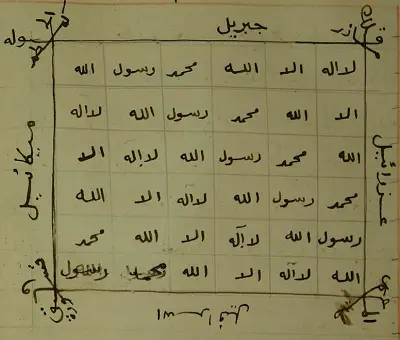 جبريل
لااله الا الله محمد رسول الله
الا الله محمد رسول الله لااله
الله محمد رسول الله لااله الا
محمد رسول الله لااله الا الله
رسول الله لااله الا الله محمد
الله لااله الا الله محمد رسول
عزرائيل
ميكائيل
اسرافيل